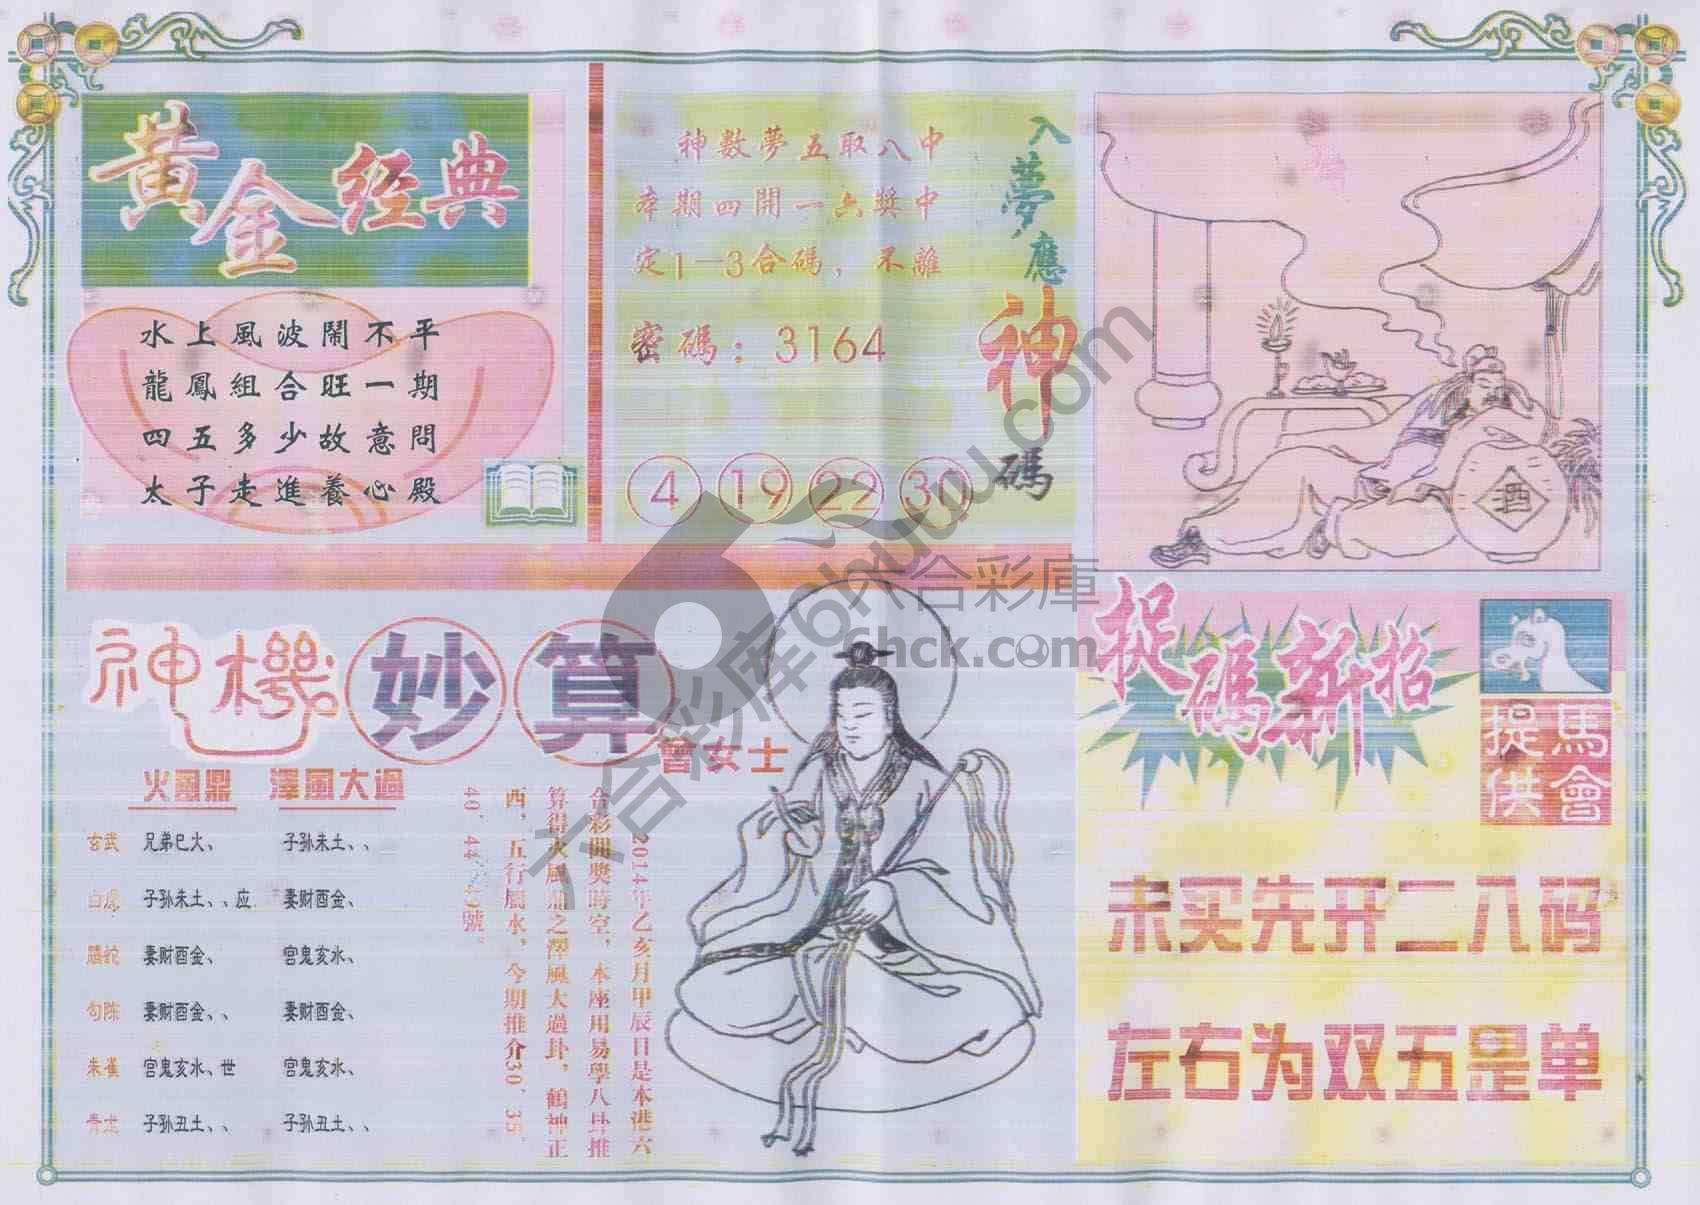 黃金經典
水上風波鬧不平
龍鳳組合旺一期
四五多少故意問
太子走進養心殿
入夢應神碼
神數夢五取八中
本期四開一六獎中
定1—3合碼，不離
密碼：3164
4 19 22 30
酒
神機妙算
曾女士
火風鼎 澤風大過
玄武 兄弟巳火、 子孙未土、、
白虎 子孙未土、、应 妻财酉金、
螣蛇 妻财酉金、 官鬼亥水、
句陈 妻财酉金、、 妻财酉金、
朱雀 官鬼亥水、世 官鬼亥水、
青龙 子孙丑土、、 子孙丑土、、
2014年乙亥月甲辰日是本港六
合彩開獎時空，本座用易學八卦推
算得火風鼎之澤風大過卦，鶴神正
西，五行屬水，今期推介30、35、
40、44、49號。
捉碼新招
馬會
捉供
未买先开二八码
左右为双五是单
六合彩庫
6hck.com
六合彩库6huwu.com